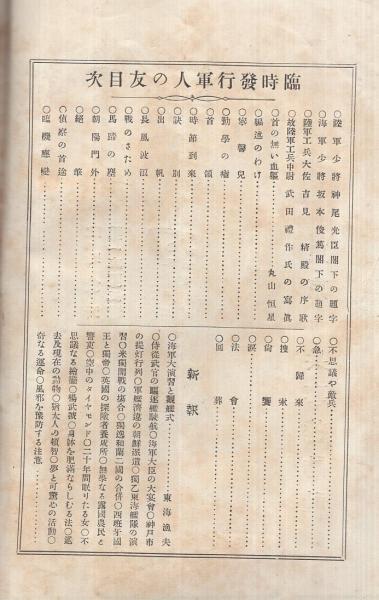 臨時發行軍人の友目次
○陸軍少將神尾光臣閣下の題字
○海軍少將坂本俊篤閣下の題字
○陸軍工兵大佐吉見精殿の序歌
○故陸軍工兵中尉武田禮作氏の寫眞
○首の無い血軀 丸山恒星
○騙逃のわけ
○寧馨兒
○勤學の痕
○首領
○時節到來
○訣別
○出帆
○長風波浪
○戰のさため
○馬蹄の塵
○朝陽門外
○絕筆
○偵察の首途
○臨機應變
○不思議や敵兵
○急
○不歸來
○捜索
○尙饗
○涙
○法會
○回葬
新報
○海軍大演習と觀艦式 東海漁夫
○侍從武官の驅逐艦駛航○海軍大臣の大宴會○神戸市
の提灯行列○軍艦濟遠の朝鮮派遣○獨乙東海艦隊の演
習○米獨開戰の場合○獨逸和蘭二國の合併○西班牙國
王と獨帝○英國の探險者養成所○無學なる露國農民と
警吏○空中のダイヤモンド○二十年間眠りたる女○不
思議なる繪筆○楊武號○身體を肥滿ならしむる法○過
去及現在の動物○猶太人の頓智○夢と可驚心の活動○
奇なる運命○風邪を豫防する注意